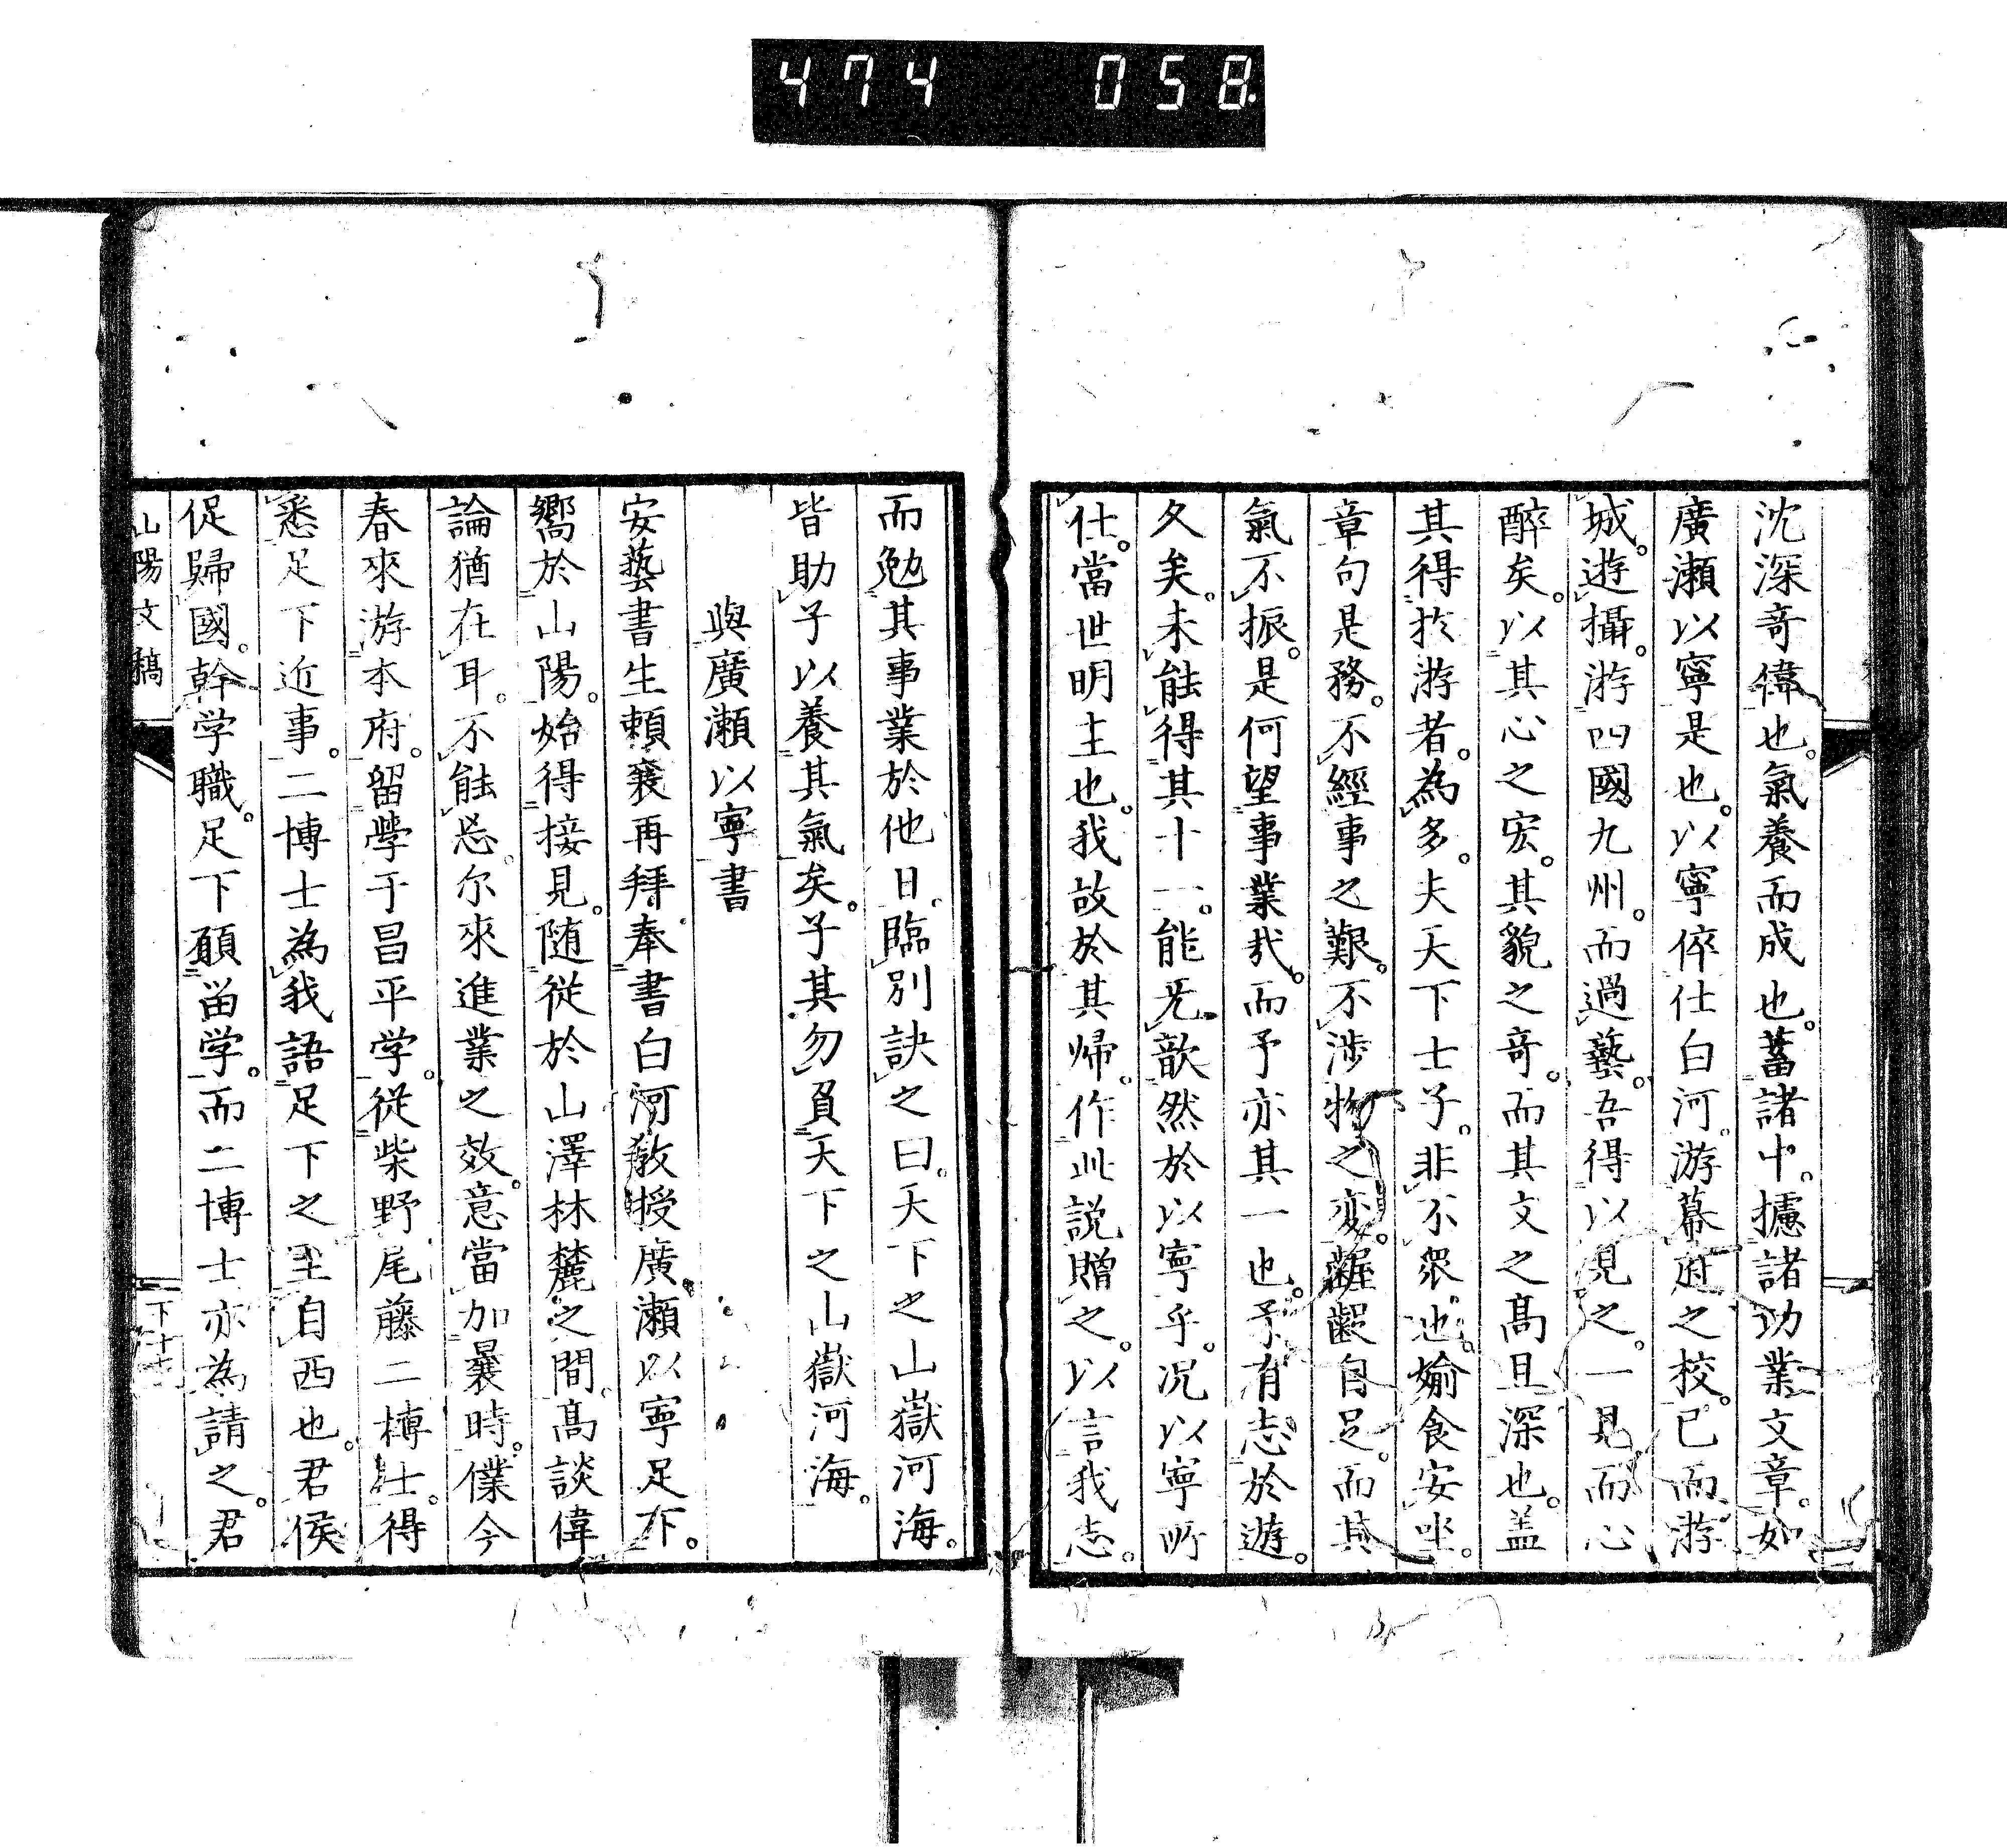 474 058
沈深奇偉也。氣養而成也。蓄諸中。攄諸功業文章。如
廣瀨以寧是也。以寧倅仕白河。游幕府之校。已而游
城。遊攝。游四國九州。而過藝。吾得以見之。一見而心
醉矣。以其心之宏。其貌之奇。而其文之高且深也。盖
其得於游者。為多。夫天下士子。非不衆也。媮食安坐。
章句是務。不經事之艱。不涉物之変。齷齪自足。而其
氣不振。是何望事業哉。而予亦其一也。予有志於遊。
久矣。未能得其十一。能无歆然於以寧乎。况以寧所
仕。當世明主也。我故於其帰。作此説贈之。以言我志。
而勉其事業於他日。臨別訣之曰。天下之山嶽河海。
皆助子以養其氣矣。子其勿負天下之山嶽河海。
與廣瀨以寧書
安藝書生頼襄再拜。奉書白河教授廣瀨以寧足下。
嚮於山陽。始得接見。随從於山澤林麓之間。高談偉
論猶在耳。不能忘。尔來進業之效。意當加曩時。僕今
春來游本府。留學于昌平学。從柴野尾藤二博士。得
悉足下近事。二博士為我語足下之至自西也。君侯
促歸國。幹学職。足下願留学。而二博士亦為請之。君
山陽文稿
下十七